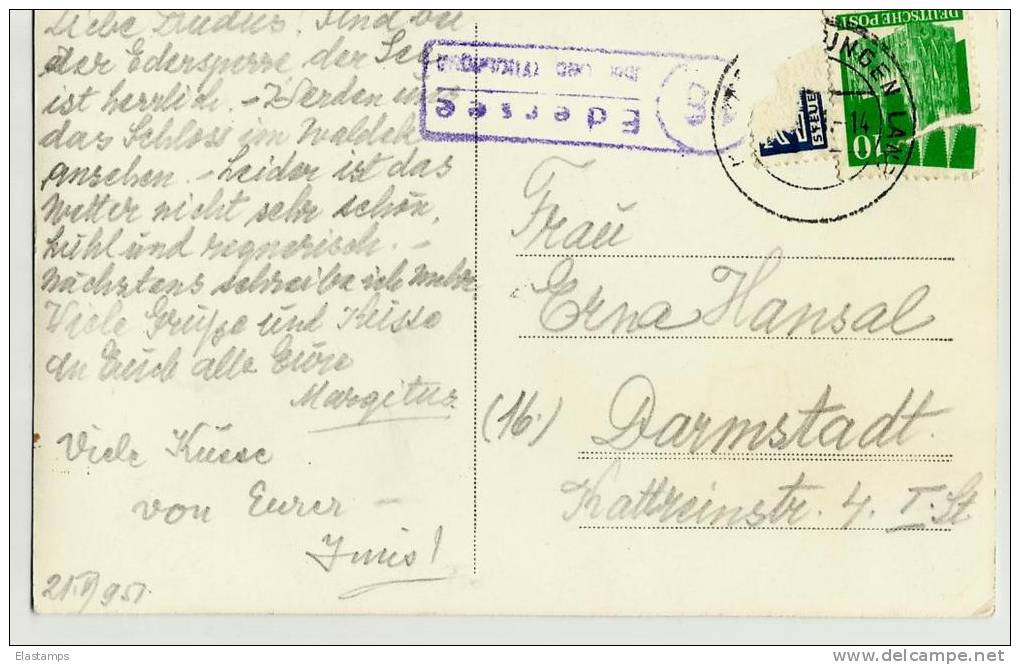 Liebe
der Edersperre der See
ist herrlich. – Werden uns
das Schloss im Waldeck
ansehen. – Leider ist das
Wetter nicht sehr schön,
kühl und regnerisch. –
Nächstens schreibe ich mehr
Viele Grüße und Küsse
an Euch alle Eure
Margitus.
Viele Küsse
von Eurer –
21. 951.
DEUTSCHE POST
10
UNGEN
LAND
14
STEUE
Edersee
16
Frau
Erna Hansal
(16.) Darmstadt.
Kattreinstr. 4. I. St
Elastamps
delcampe.net